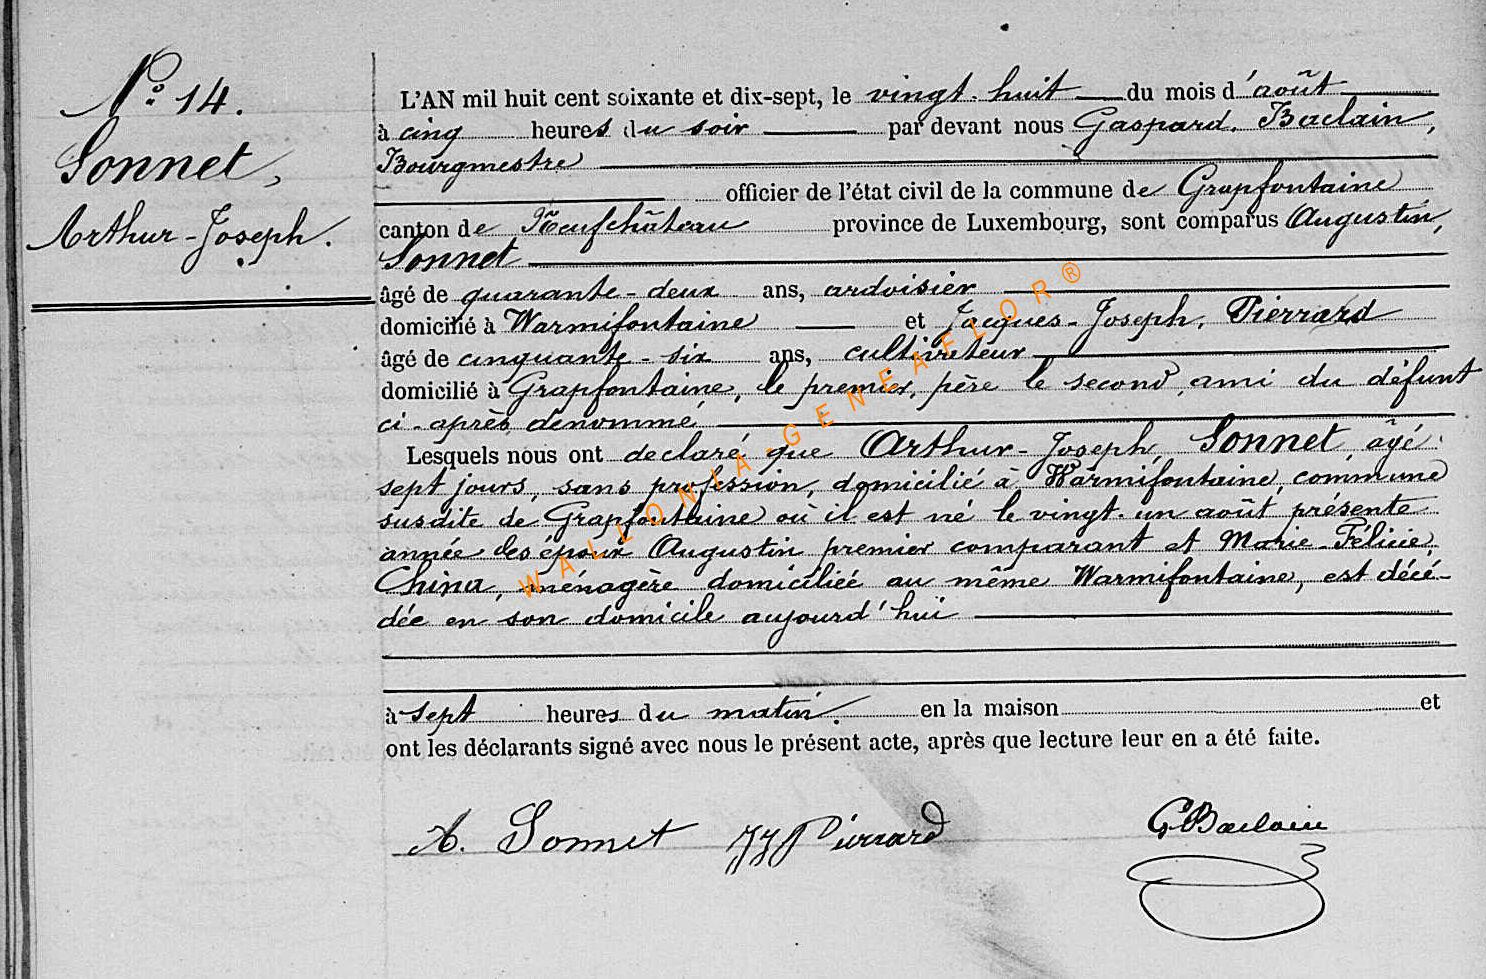 N° 14.
Sonnet,
Arthur-Joseph.
L'AN mil huit cent soixante et dix-sept, le vingt-huit du mois d'août
à cinq heures du soir par devant nous Gaspard Baclain,
Bourgmestre
officier de l'état civil de la commune de Grapfontaine
canton de Neufchâteau province de Luxembourg, sont comparus Augustin,
Sonnet
âgé de quarante-deux ans, ardoisier
domicilié à Warmifontaine et Jacques-Joseph, Pierrard
âgé de cinquante-six ans, cultivateur
domicilié à Grapfontaine, le premier, père le second, ami du défunt
ci-après dénommé
Lesquels nous ont declaré que Arthur-Joseph, Sonnet, âgé
sept jours, sans profession, domicilié à Warmifontaine, commune
susdite de Grapfontaine où il est né le vingt-un août présente
année des époux Augustin premier comparant et Marie-Félicie,
China, ménagère domiciliée au même Warmifontaine, est décé-
dée en son domicile aujourd'hui
à sept heures du matin. en la maison et
ont les déclarants signé avec nous le présent acte, après que lecture leur en a été faite.
A. Sonnet JJ Pierrard G Baclain
WALLONIA-GENEAFLOR®